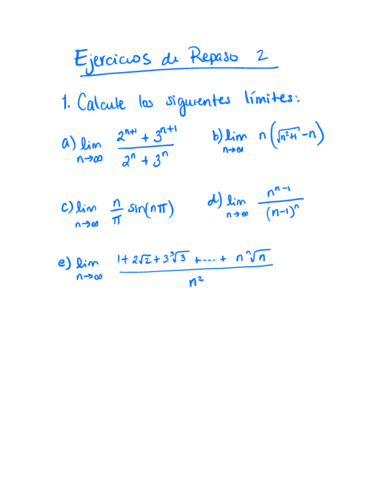 Ejercicios de Repaso 2
1. Calcule los siguientes límites:
a) lim n→∞ (2^{n+1} + 3^{n+1}) / (2^n + 3^n)    b) lim n→∞ n(√(n²+1) - n)
c) lim n→∞ n/π sin(nπ)    d) lim n→∞ n^{n-1} / (n-1)^n
e) lim n→∞ (1 + 2√2 + 3∛3 + .... + n ⁿ√n) / n²